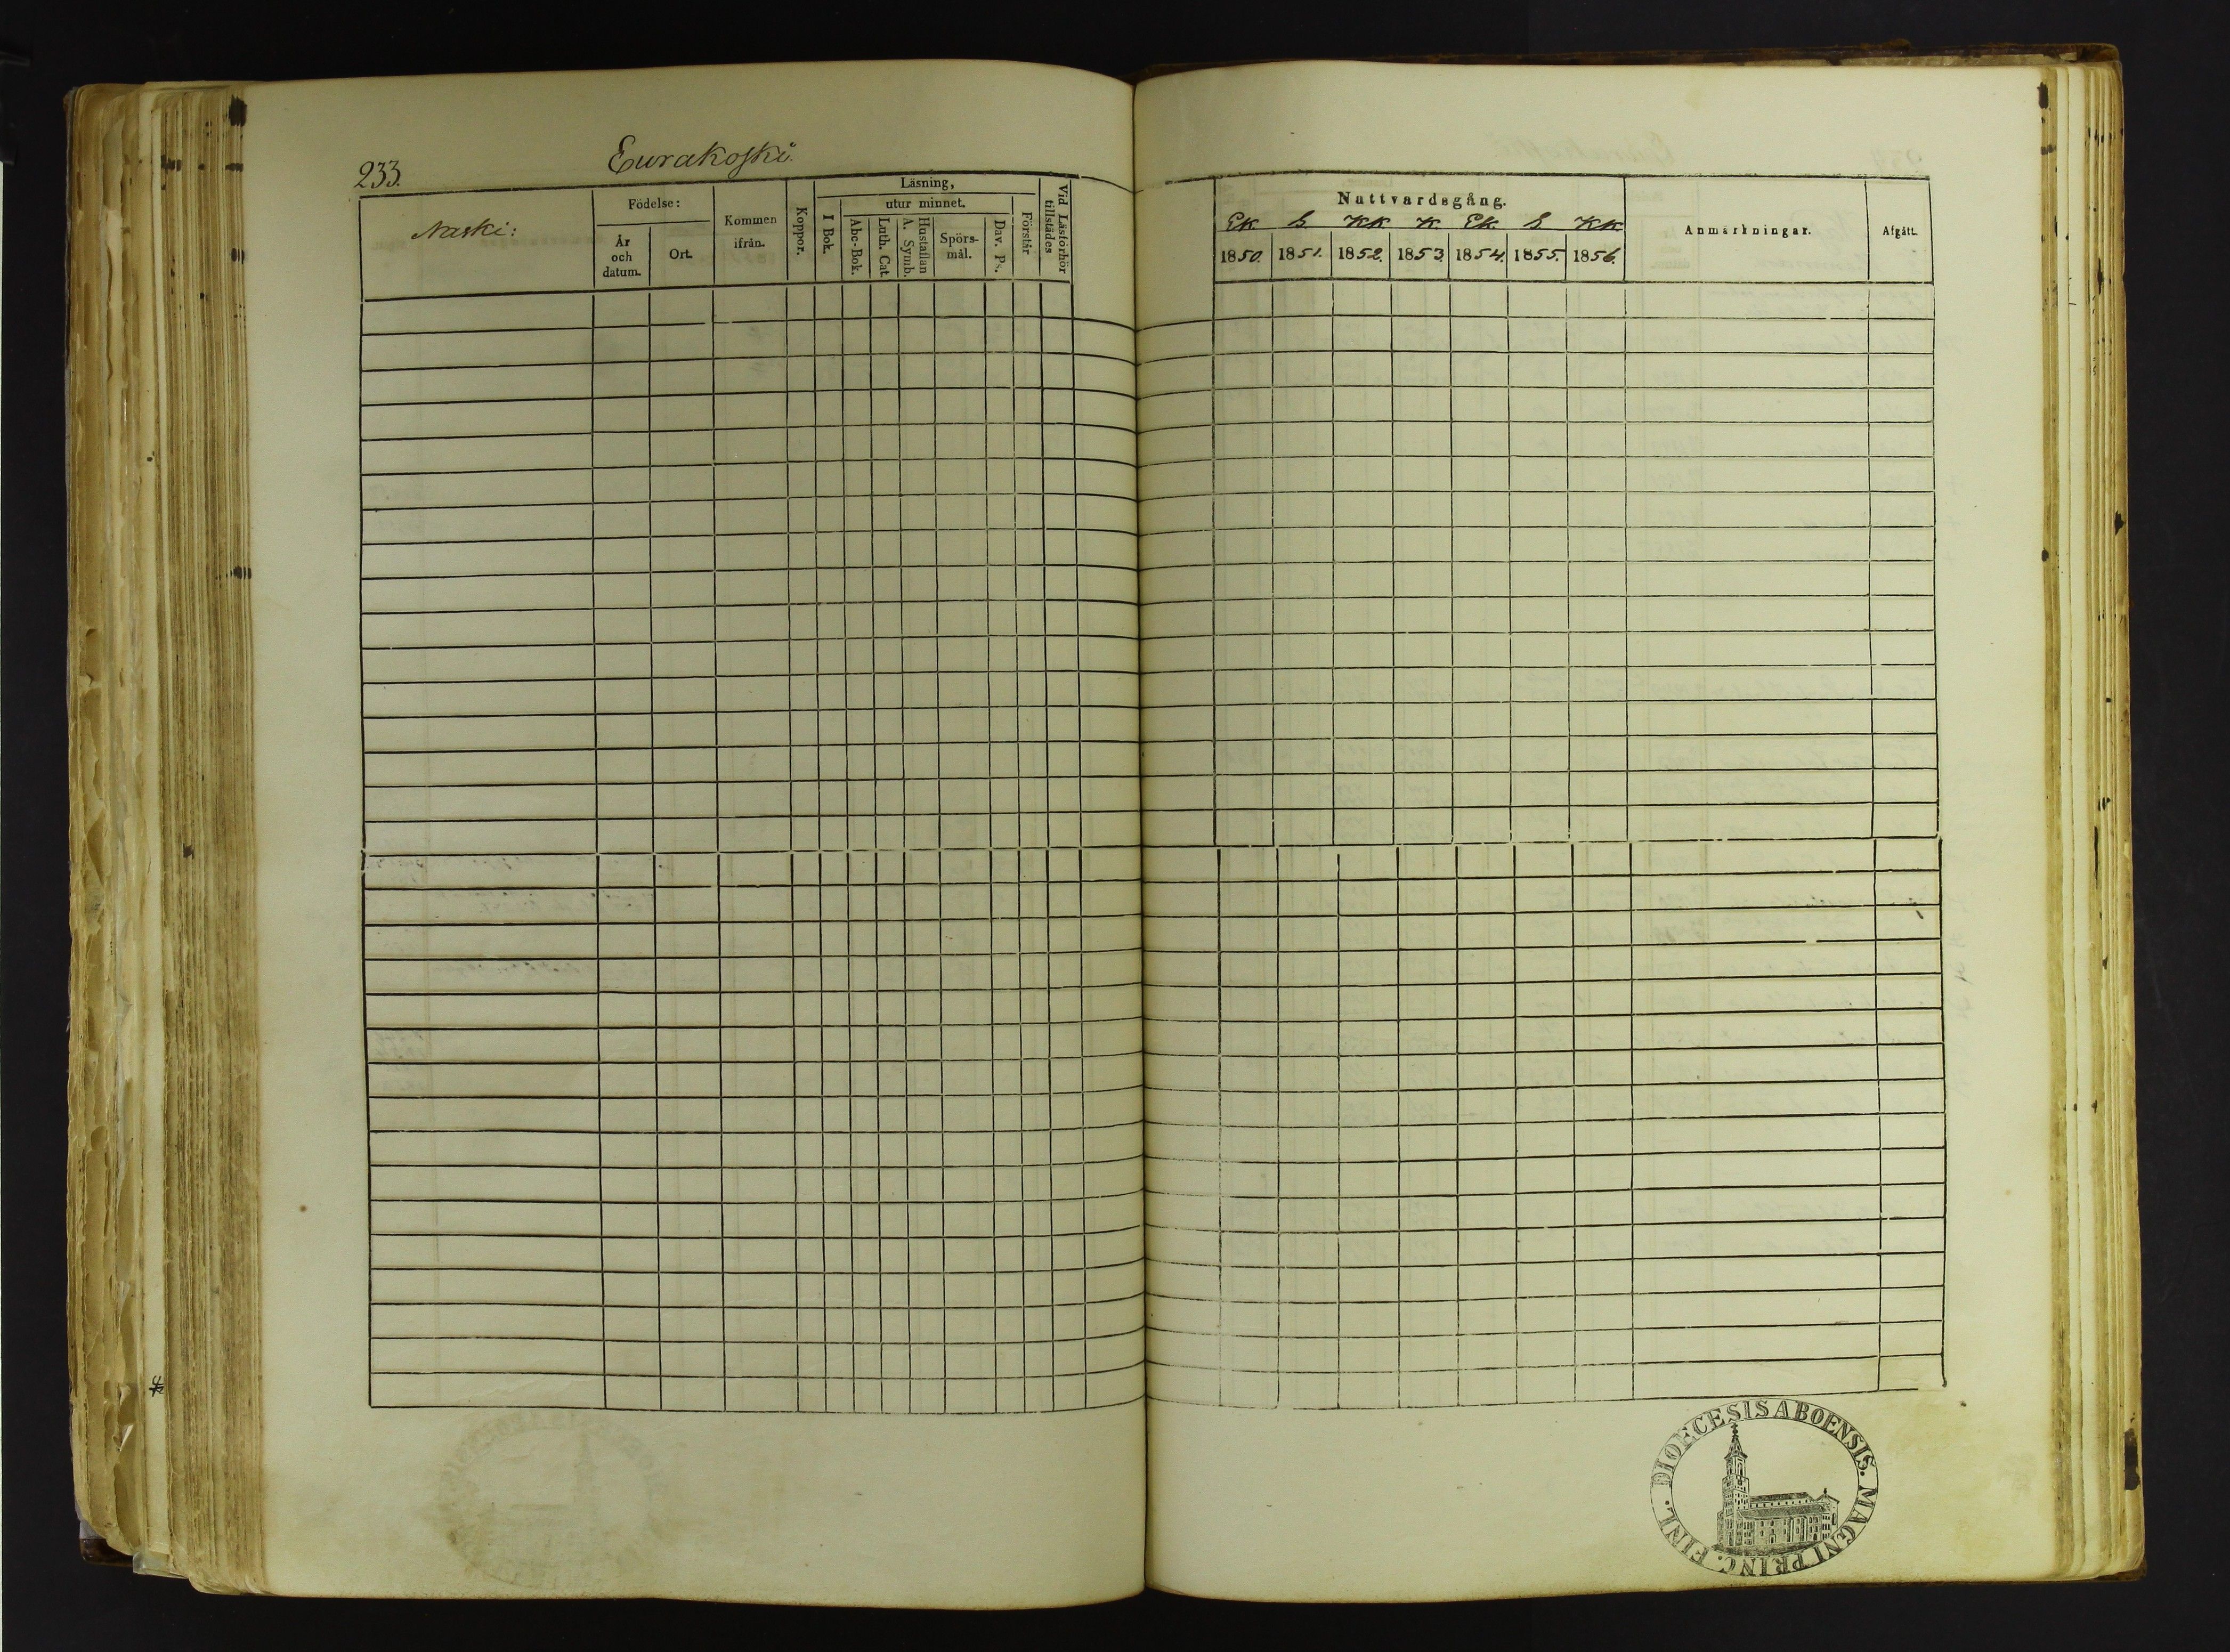 233.
Eurakoski.
Naski:
Födelse:
År
och
datum.
Ort.
Kommen
ifrån.
Koppor.
Läsning,
I Bok.
utur minnet.
Abc-Bok.
Luth. Cat.
A. Symb.
Hustaflan
Spörs-
mål.
Dav. Ps.
Förstår
Vid Läsförhör
tillstädes
Nattvardsgång.
Ek. S KK K. Ek. S. KK
1850. 1851. 1852. 1853. 1854. 1855. 1856.
Anmärkningar.
Afgått.
DIOECESIS ABOENSIS. MAGNI PRINC. FINL.